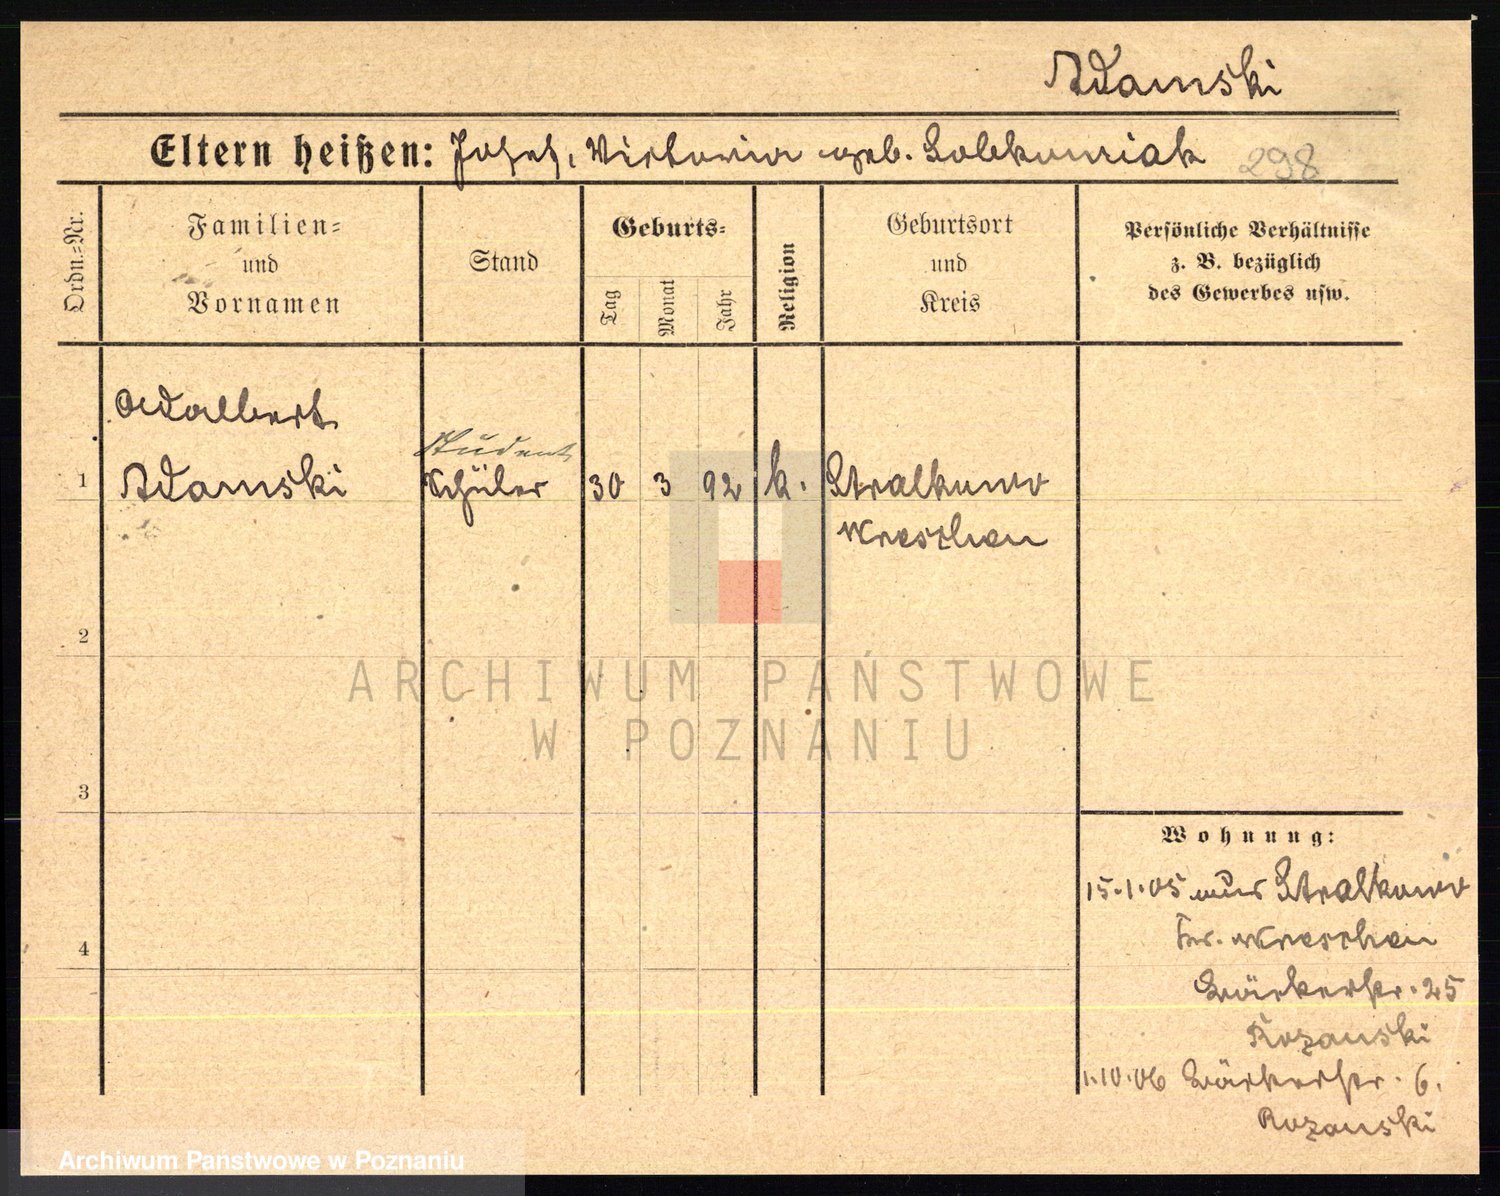 Adamski
Eltern heißen: Josef, Victoria geb. 298
Ordn.=Nr.
Familien=
und
Vornamen
Stand
Geburts=
Tag
Monat
Jahr
Religion
Geburtsort
und
Kreis
Persönliche Verhältnisse
z. B. bezüglich
des Gewerbes usw.
Adalbert
Student
1 Adamski Schüler 30 3 92 k. Stralkowo
Wreschen
2
ARCHIWUM PAŃSTWOWE
W POZNANIU
3
Wohnung:
15.1.05 aus Stralkowo
Kr. Wreschen
4
Bäckerstr. 25
Rozanski
1.10.06 Bäckerstr. 6.
Rozanski
Archiwum Państwowe w Poznaniu